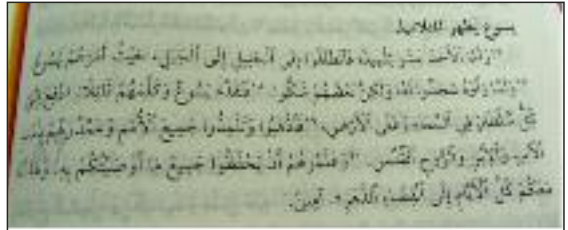 يسوع يظهر للتلاميذ
وأما الأحد عشر تلميذا فانطلقوا إلى الجليل إلى الجبل، حيث أمرهم يسوع
ولما رأوه سجدوا له، ولكن بعضهم شكوا. فتقدم يسوع وكلمهم قائلا: دفع إلي
كل سلطان في السماء وعلى الأرض، فاذهبوا وتلمذوا جميع الأمم وعمدوهم باسم
الآب والابن والروح القدس. وعلموهم أن يحفظوا جميع ما أوصيتكم به. وها أنا
معكم كل الأيام إلى انقضاء الدهر. آمين.